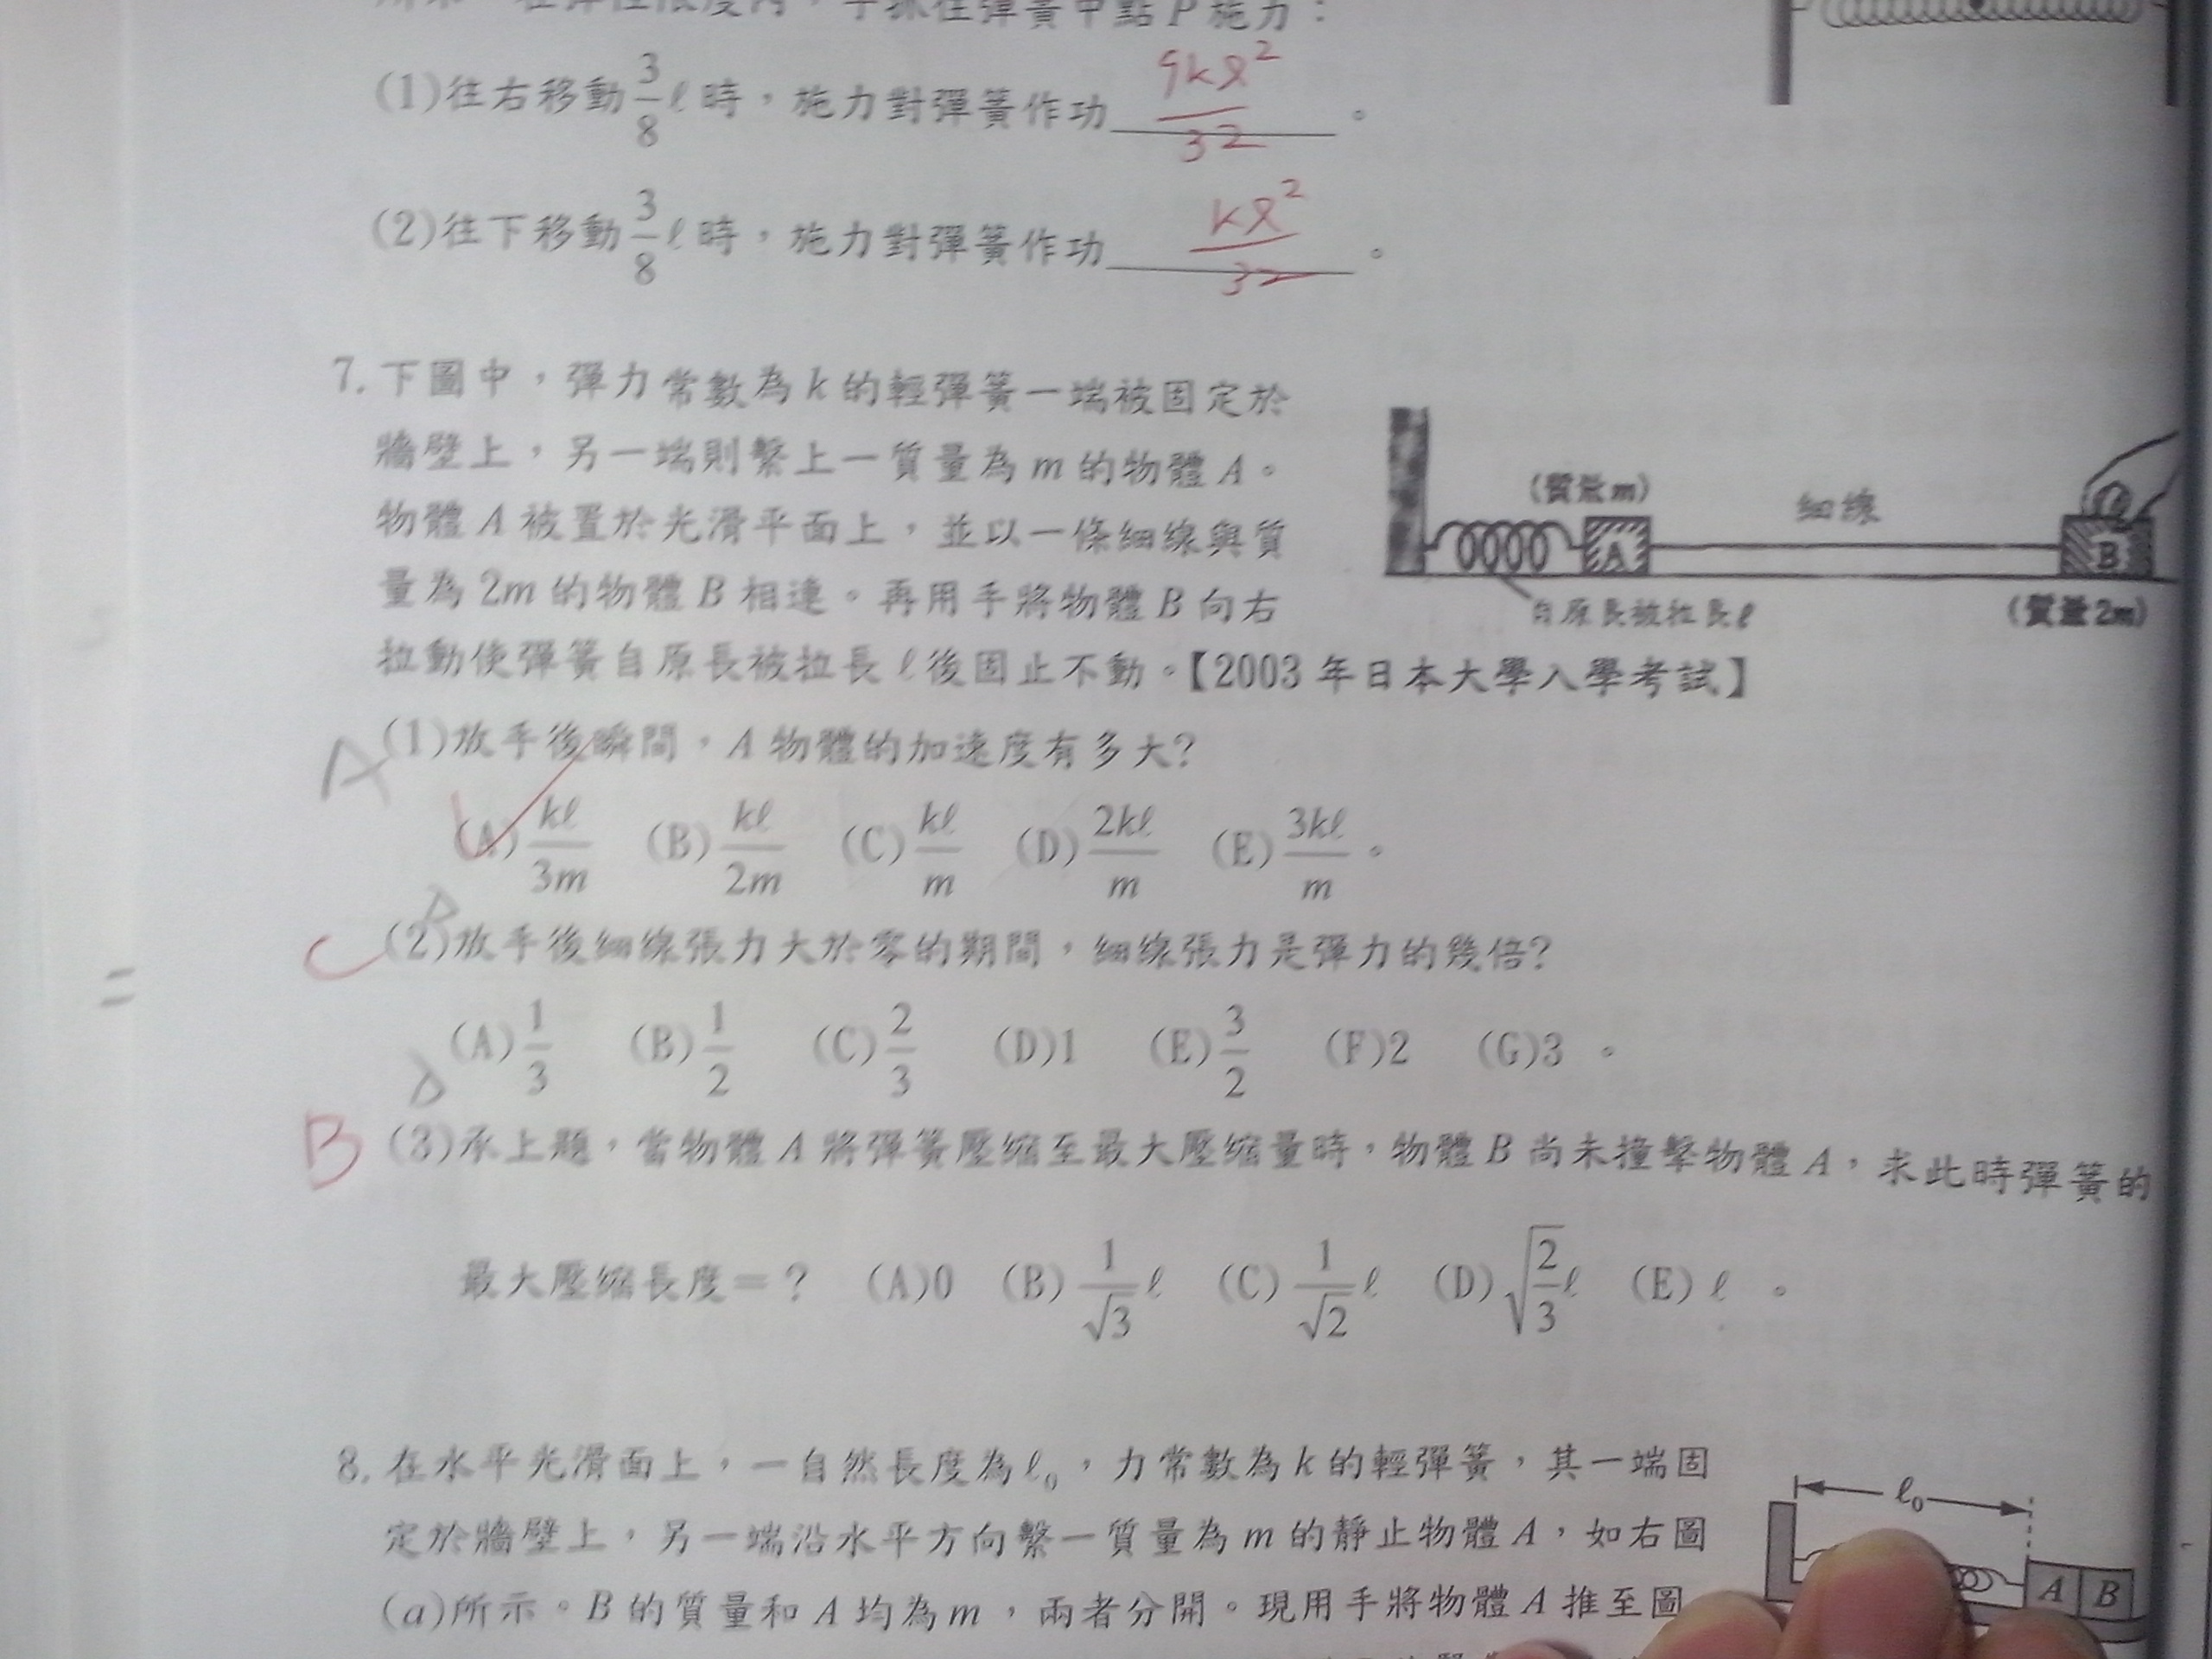 在彈性限度內，手抓住彈簧中點P施力：
(1)往右移動3/8 ℓ時，施力對彈簧作功 9kℓ²/32 。
(2)往下移動3/8 ℓ時，施力對彈簧作功 kℓ²/32 。
7. 下圖中，彈力常數為k的輕彈簧一端被固定於
牆壁上，另一端則繫上一質量為m的物體A。
物體A被置於光滑平面上，並以一條細線與質
量為2m的物體B相連。再用手將物體B向右
拉動使彈簧自原長被拉長ℓ後固止不動。【2003年日本大學入學考試】
(質量m)
細線
A
B
自原長被拉長ℓ
(質量2m)
A (1)放手後瞬間，A物體的加速度有多大？
(A) kℓ/3m (B) kℓ/2m (C) kℓ/m (D) 2kℓ/m (E) 3kℓ/m 。
C (2)放手後細線張力大於零的期間，細線張力是彈力的幾倍？
(A) 1/3 (B) 1/2 (C) 2/3 (D)1 (E) 3/2 (F)2 (G)3 。
D
B (3)承上題，當物體A將彈簧壓縮至最大壓縮量時，物體B尚未撞擊物體A，求此時彈簧的
最大壓縮長度＝？ (A)0 (B) 1/√3 ℓ (C) 1/√2 ℓ (D) √(2/3) ℓ (E) ℓ 。
8. 在水平光滑面上，一自然長度為ℓ₀，力常數為k的輕彈簧，其一端固
定於牆壁上，另一端沿水平方向繫一質量為m的靜止物體A，如右圖
(a)所示。B的質量和A均為m，兩者分開。現用手將物體A推至圖
ℓ₀
A B